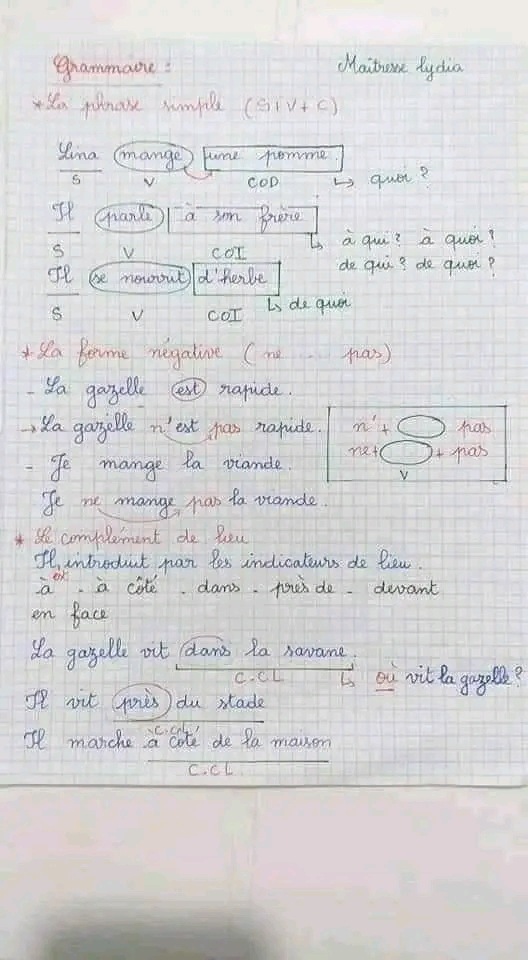 Grammaire : Maîtresse lydia
* La phrase simple (S+V+C)
Lina mange une pomme.
S V COD ↳ quoi ?
Il parle à son frère
S V COI ↳ à qui ? à quoi ?
de qui ? de quoi ?
Il se nourrit d'herbe
S V COI ↳ de quoi
* La forme négative (ne ... pas)
- La gazelle est rapide.
→ La gazelle n'est pas rapide. n' + pas
- Je mange la viande. ne + + pas
V
Je ne mange pas la viande.
* Le complément de lieu
Il est introduit par les indicateurs de lieu.
à - à côté - dans - près de - devant
en face
La gazelle vit dans la savane.
C.CL ↳ où vit la gazelle ?
Il vit près du stade
C.CL
Il marche à côté de la maison
C.CL.